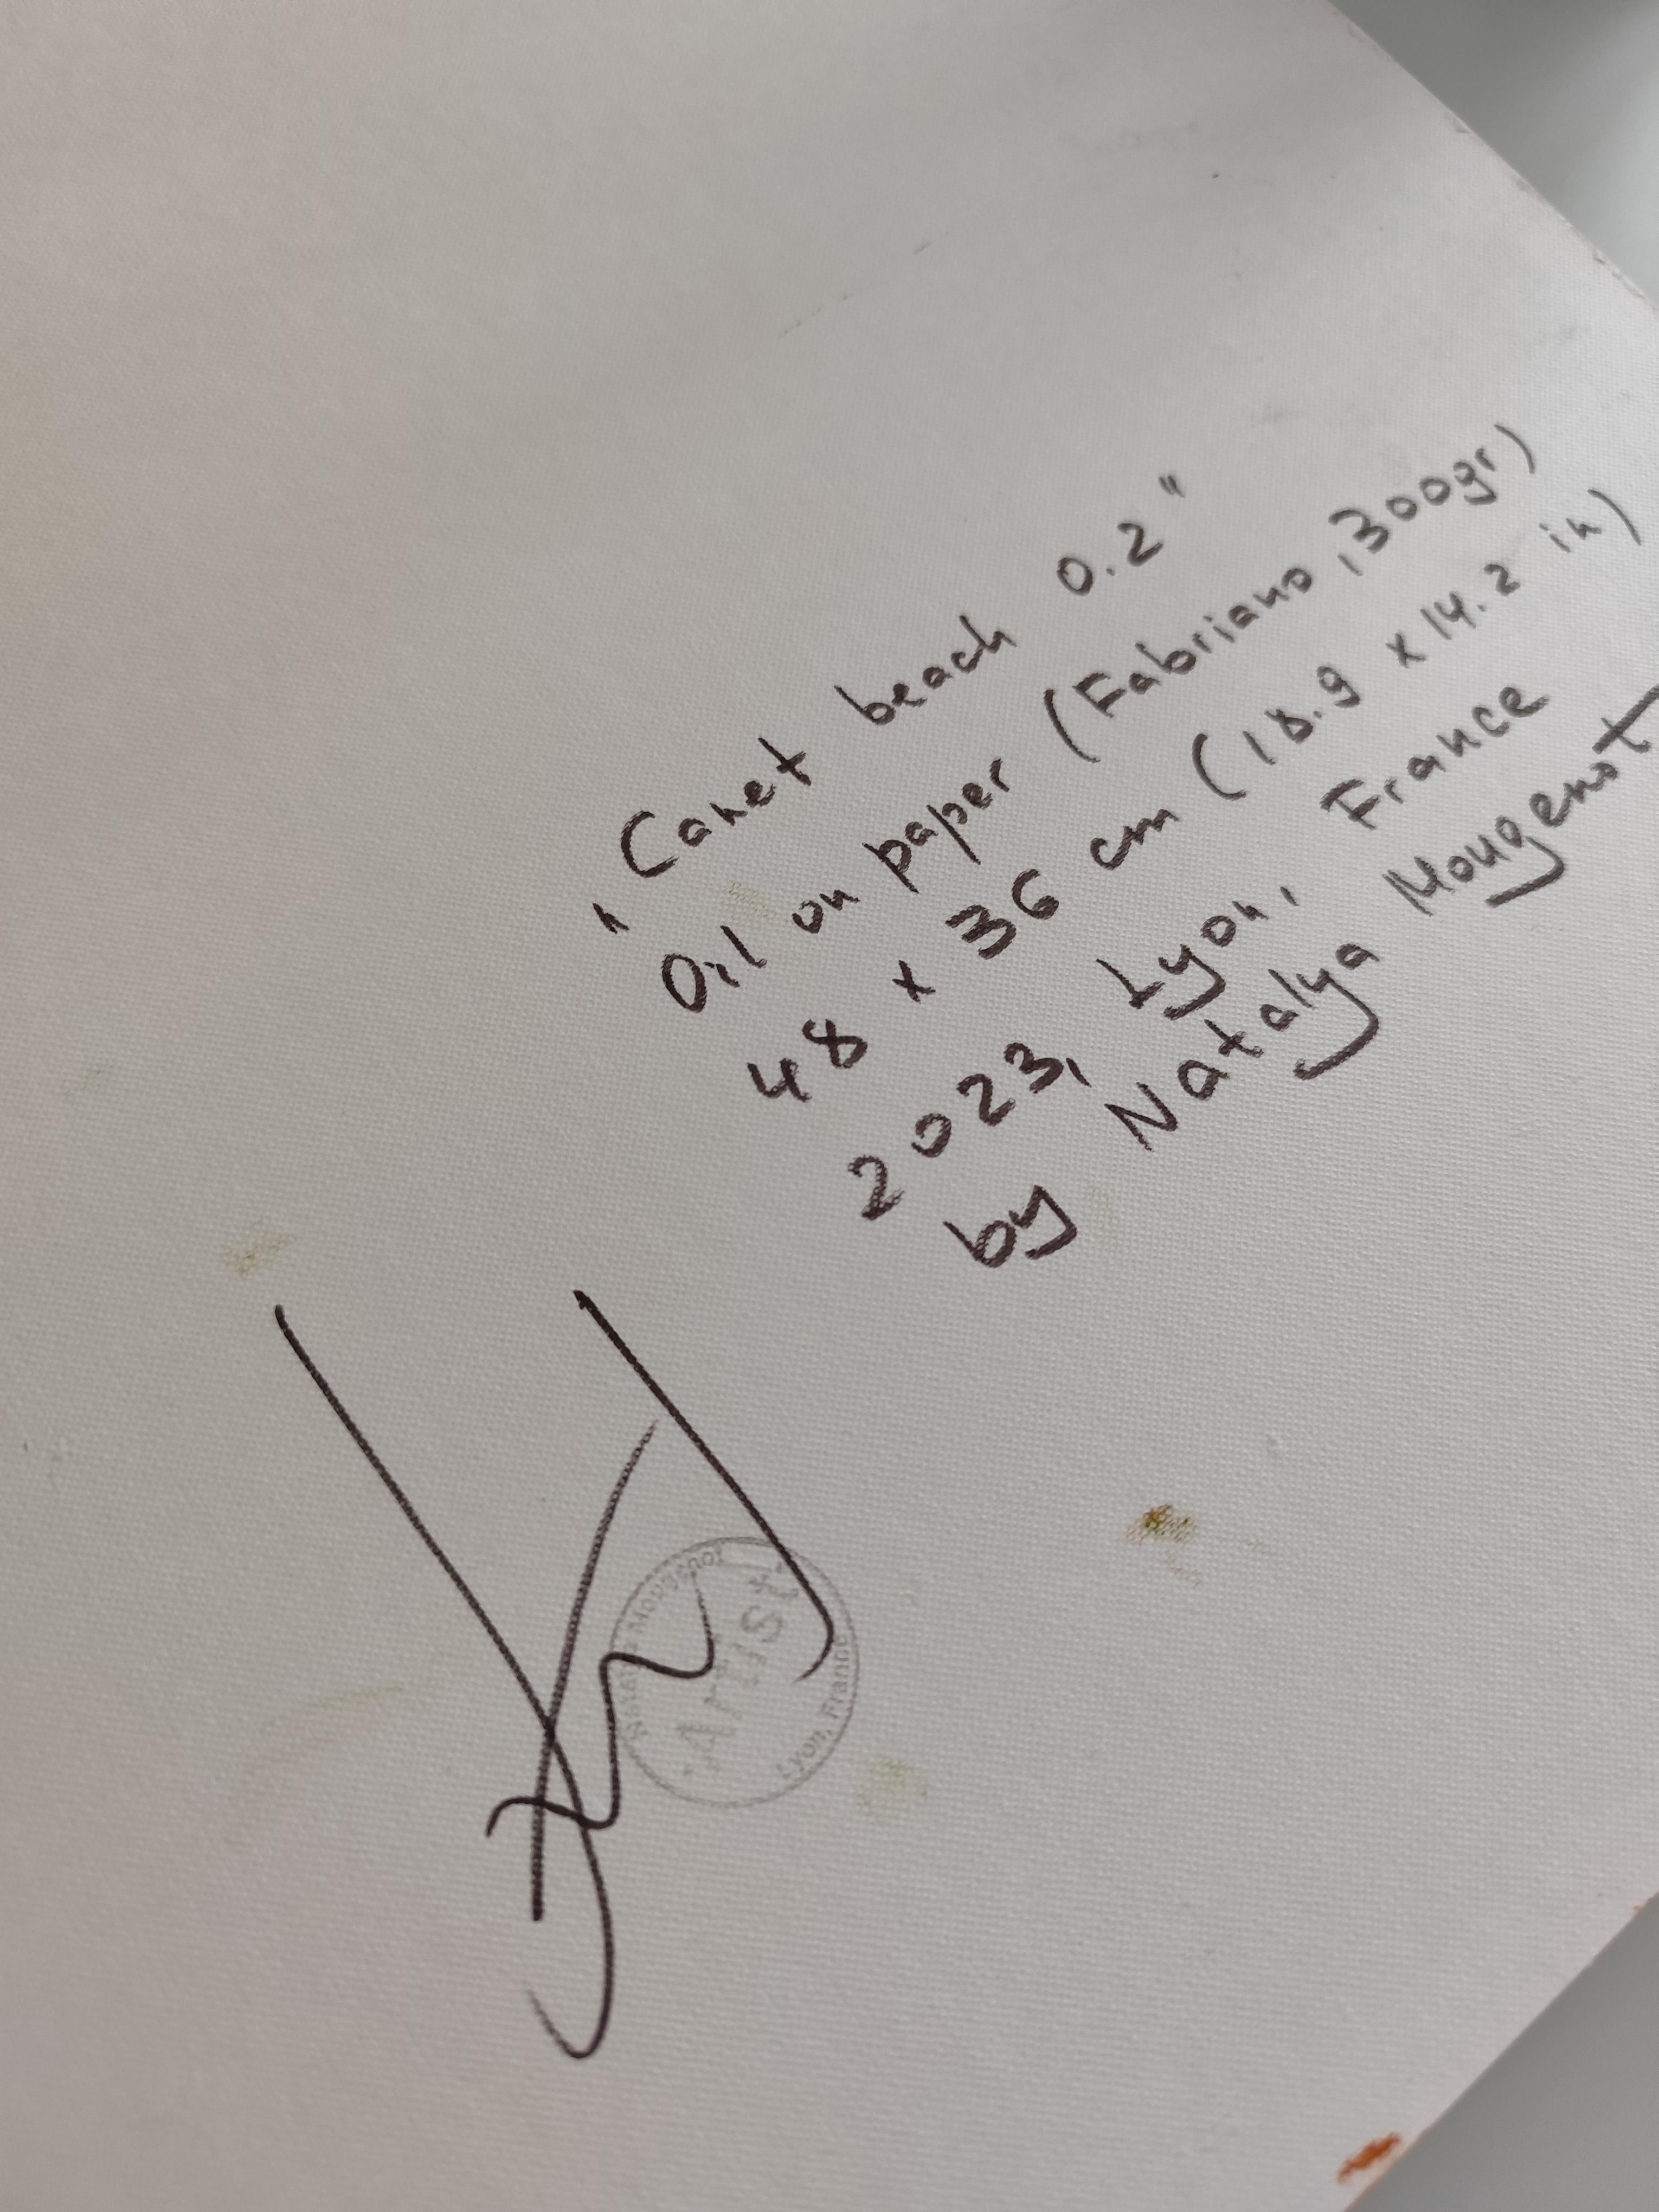 "Canet beach 0.2"
Oil on paper (Fabriano, 300gr)
48 x 36 cm (18.9 x 14.2 in)
2023, Lyon, France
by Natalya Mougenot
Natalya Mougenot
Artist
Lyon, France